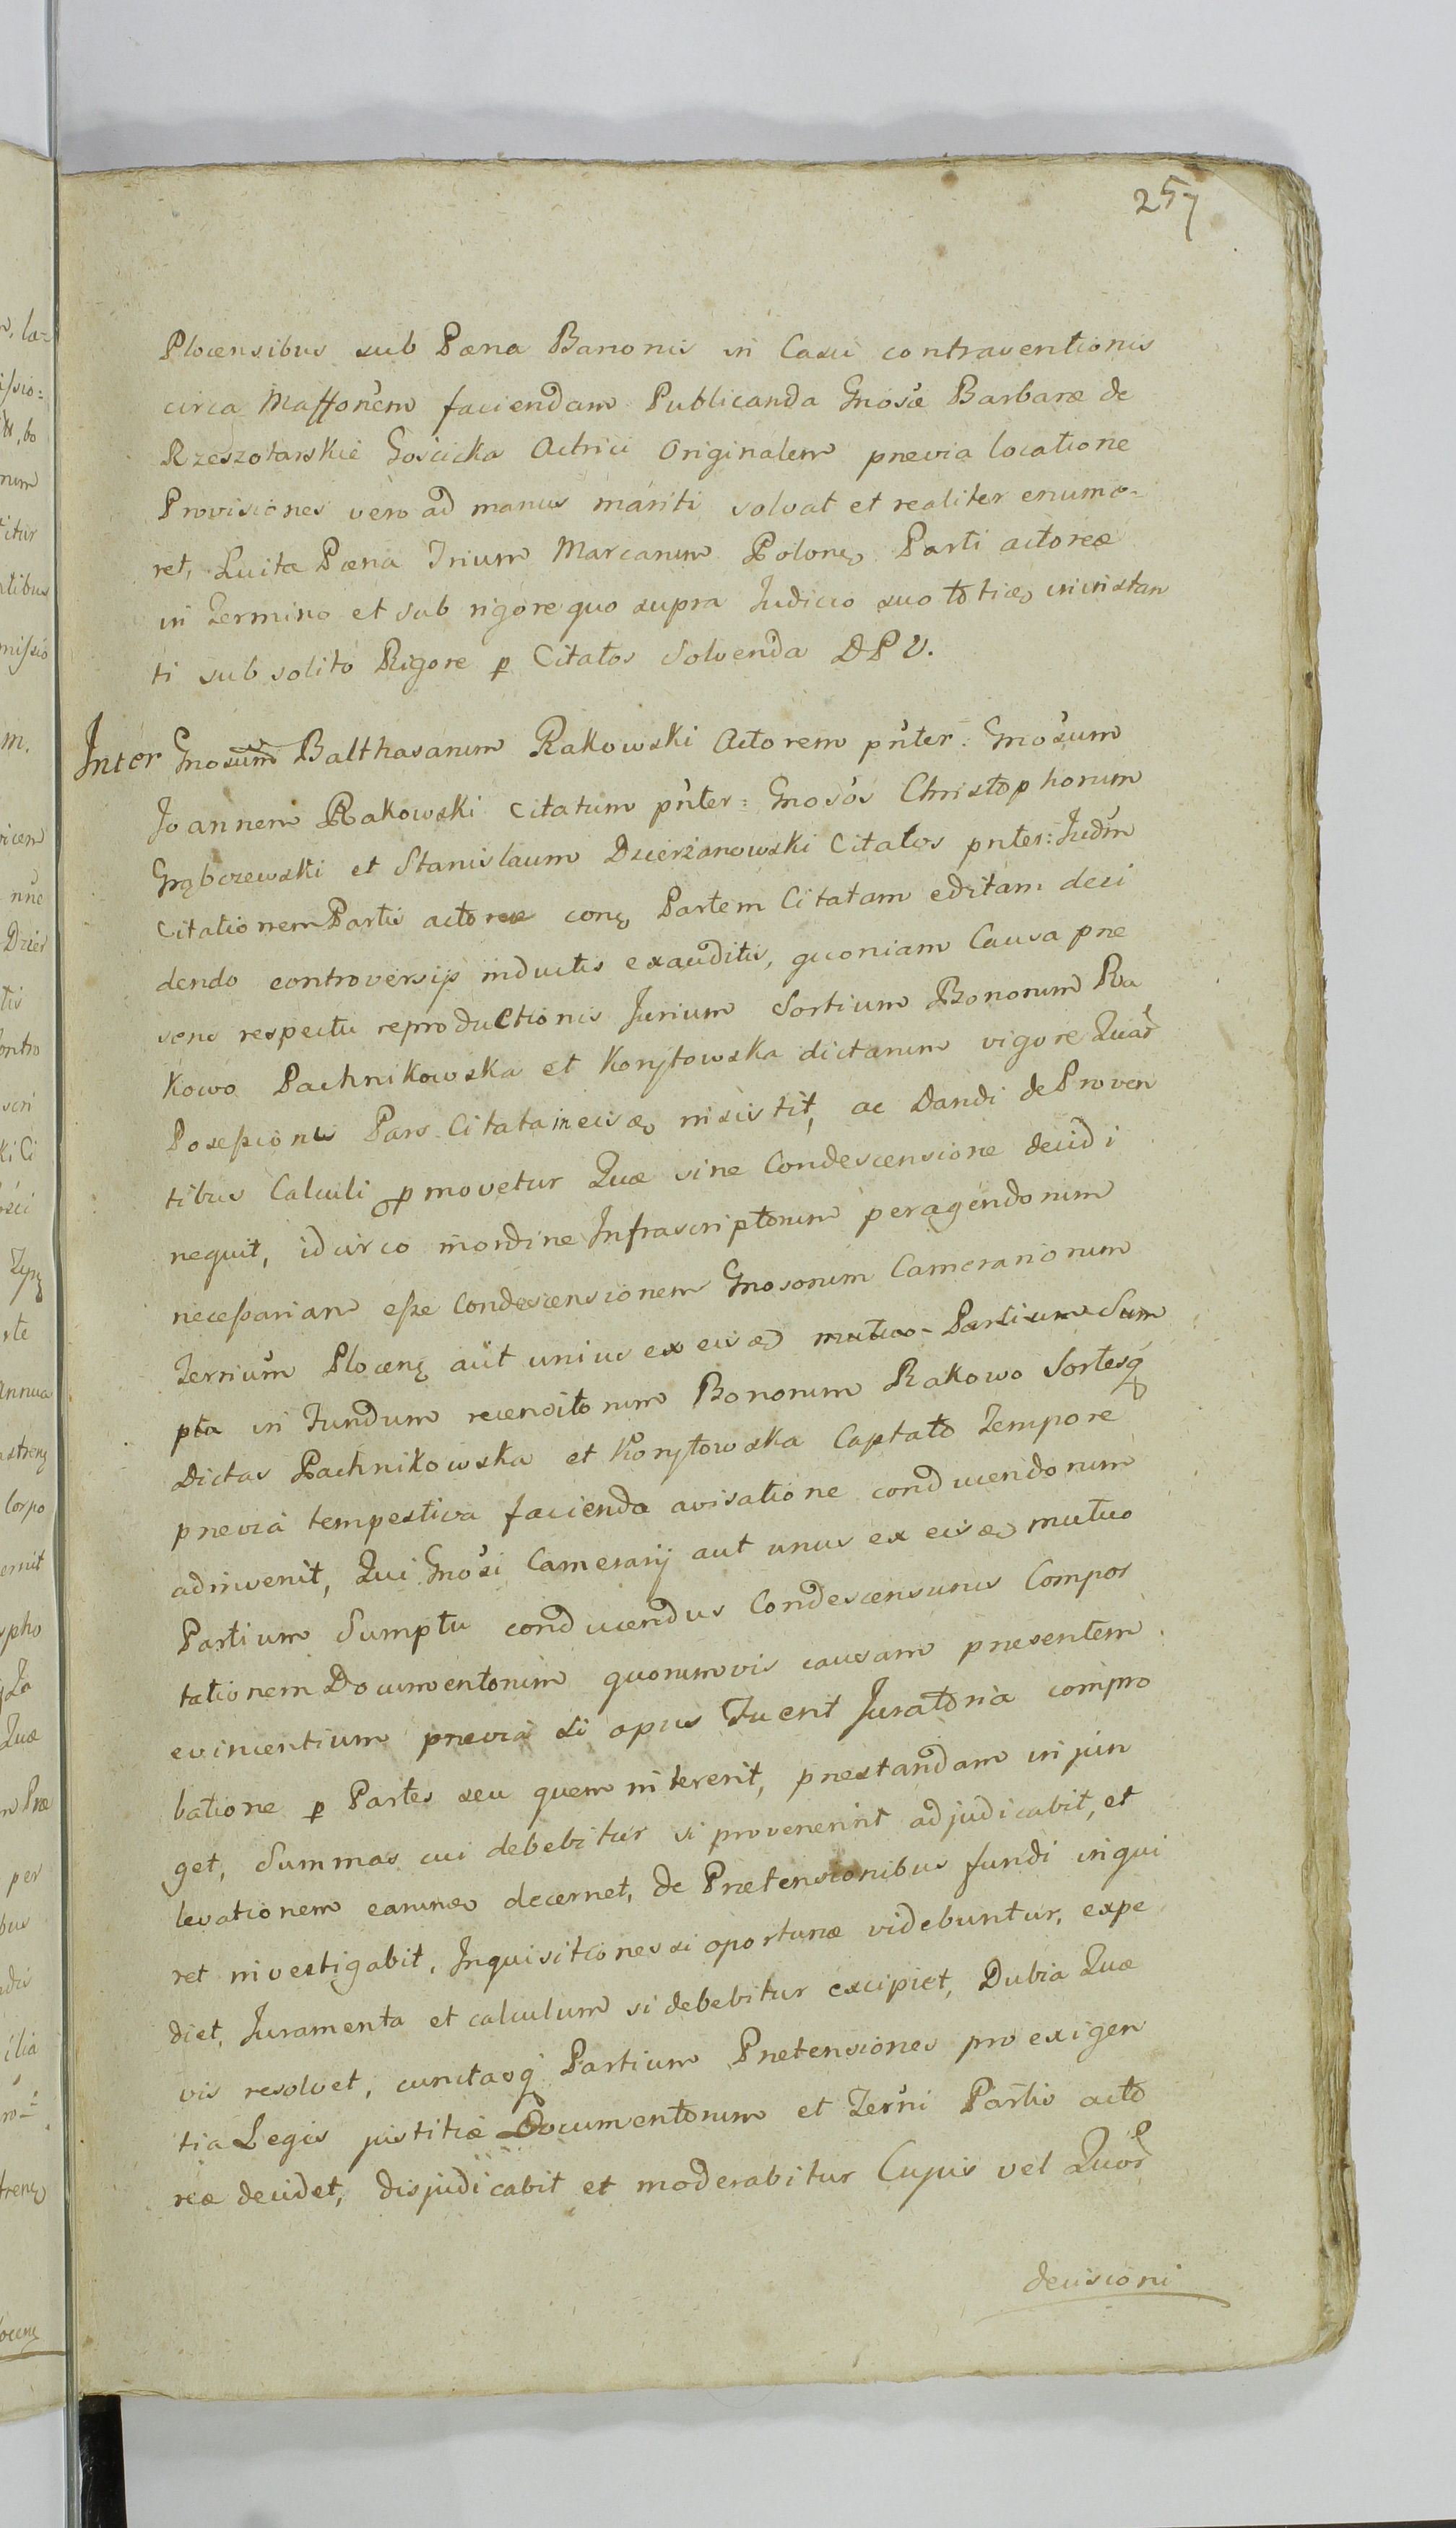 257
Plocensibus sub Pæna Banonis in Casu contraventionis
circa Maffonem faciendam Publicanda Gnosæ Barbaræ de
Rzeszotarskie Goscicka Actrici Originalem prævia locatione
Provisiones vero ad manus mariti solvat et realiter enume-
ret, Luita Pæna Trium Marcarum Polon. Parti actoreæ
in Termino et sub rigore quo supra Judicio suo totieq in instan
ti sub solito Rigore p Citatos Solvenda DPV.
Inter Gnosum Balthasarum Rakowski Actorem pnter: Gnosum
Joannem Rakowski Citatum pnter: Gnosos Christophorum
Grąbczewski et Stanislaum Dzierżanowski Citatos pnter: Judm
Citationem Partis actoreæ conq Partem Citatam editam deci
dendo controversijs inductis exauditis, quoniam Causa præ
sens respectu reproductionis Jurium Sortium Bonorum Ra
kowo Pachnikowska et Korytowska dictarum vigore Quar
Poseßionis Pars Citata in eisdq insistit, ac Dandi de Proven
tibus Calculi pmovetur Quæ sine Condescensione decidi
nequit, idcirco in ordine Infrascriptorum peragendorum
neceßariam eße Condescensionem Gnosorum Camerariorum
Terrium Plocenq aut unius ex eisdq mutuo Partium Sum
pta in Fundum recensitorum Bonorum Rakowo Sortesq
Dictas Pachnikowska et Korytowska Captato Tempore
prævia tempestiva facienda avisatione conducendorum
adinvenit, Qui Gnosi Camerarij aut unus ex eisdq mutuo
Partium Sumptu conducendus Condescensurus Compor
tationem Documentorum quorumvis causam præsentem
evincentium prævia si opus Fuerit Juratoria compro
batione p Partes seu quem intererit, præstandam injun
get, Summas cui debebitur si provenerint adjudicabit, et
levationem earundq decernet, de Prætensionibus fundi inqui
ret investigabit, Inquisitiones si oportunæ videbuntur, expe
diet, Juramenta et calculum si debebitur excipiet, Dubia Quæ
vis resolvet, cunctasq Partium Prætensiones pro exigen
tia Legis justitiæ Documentorum et Terni Partis acto
reæ decidet, disjudicabit et moderabitur Cujus vel Quor
decisioni